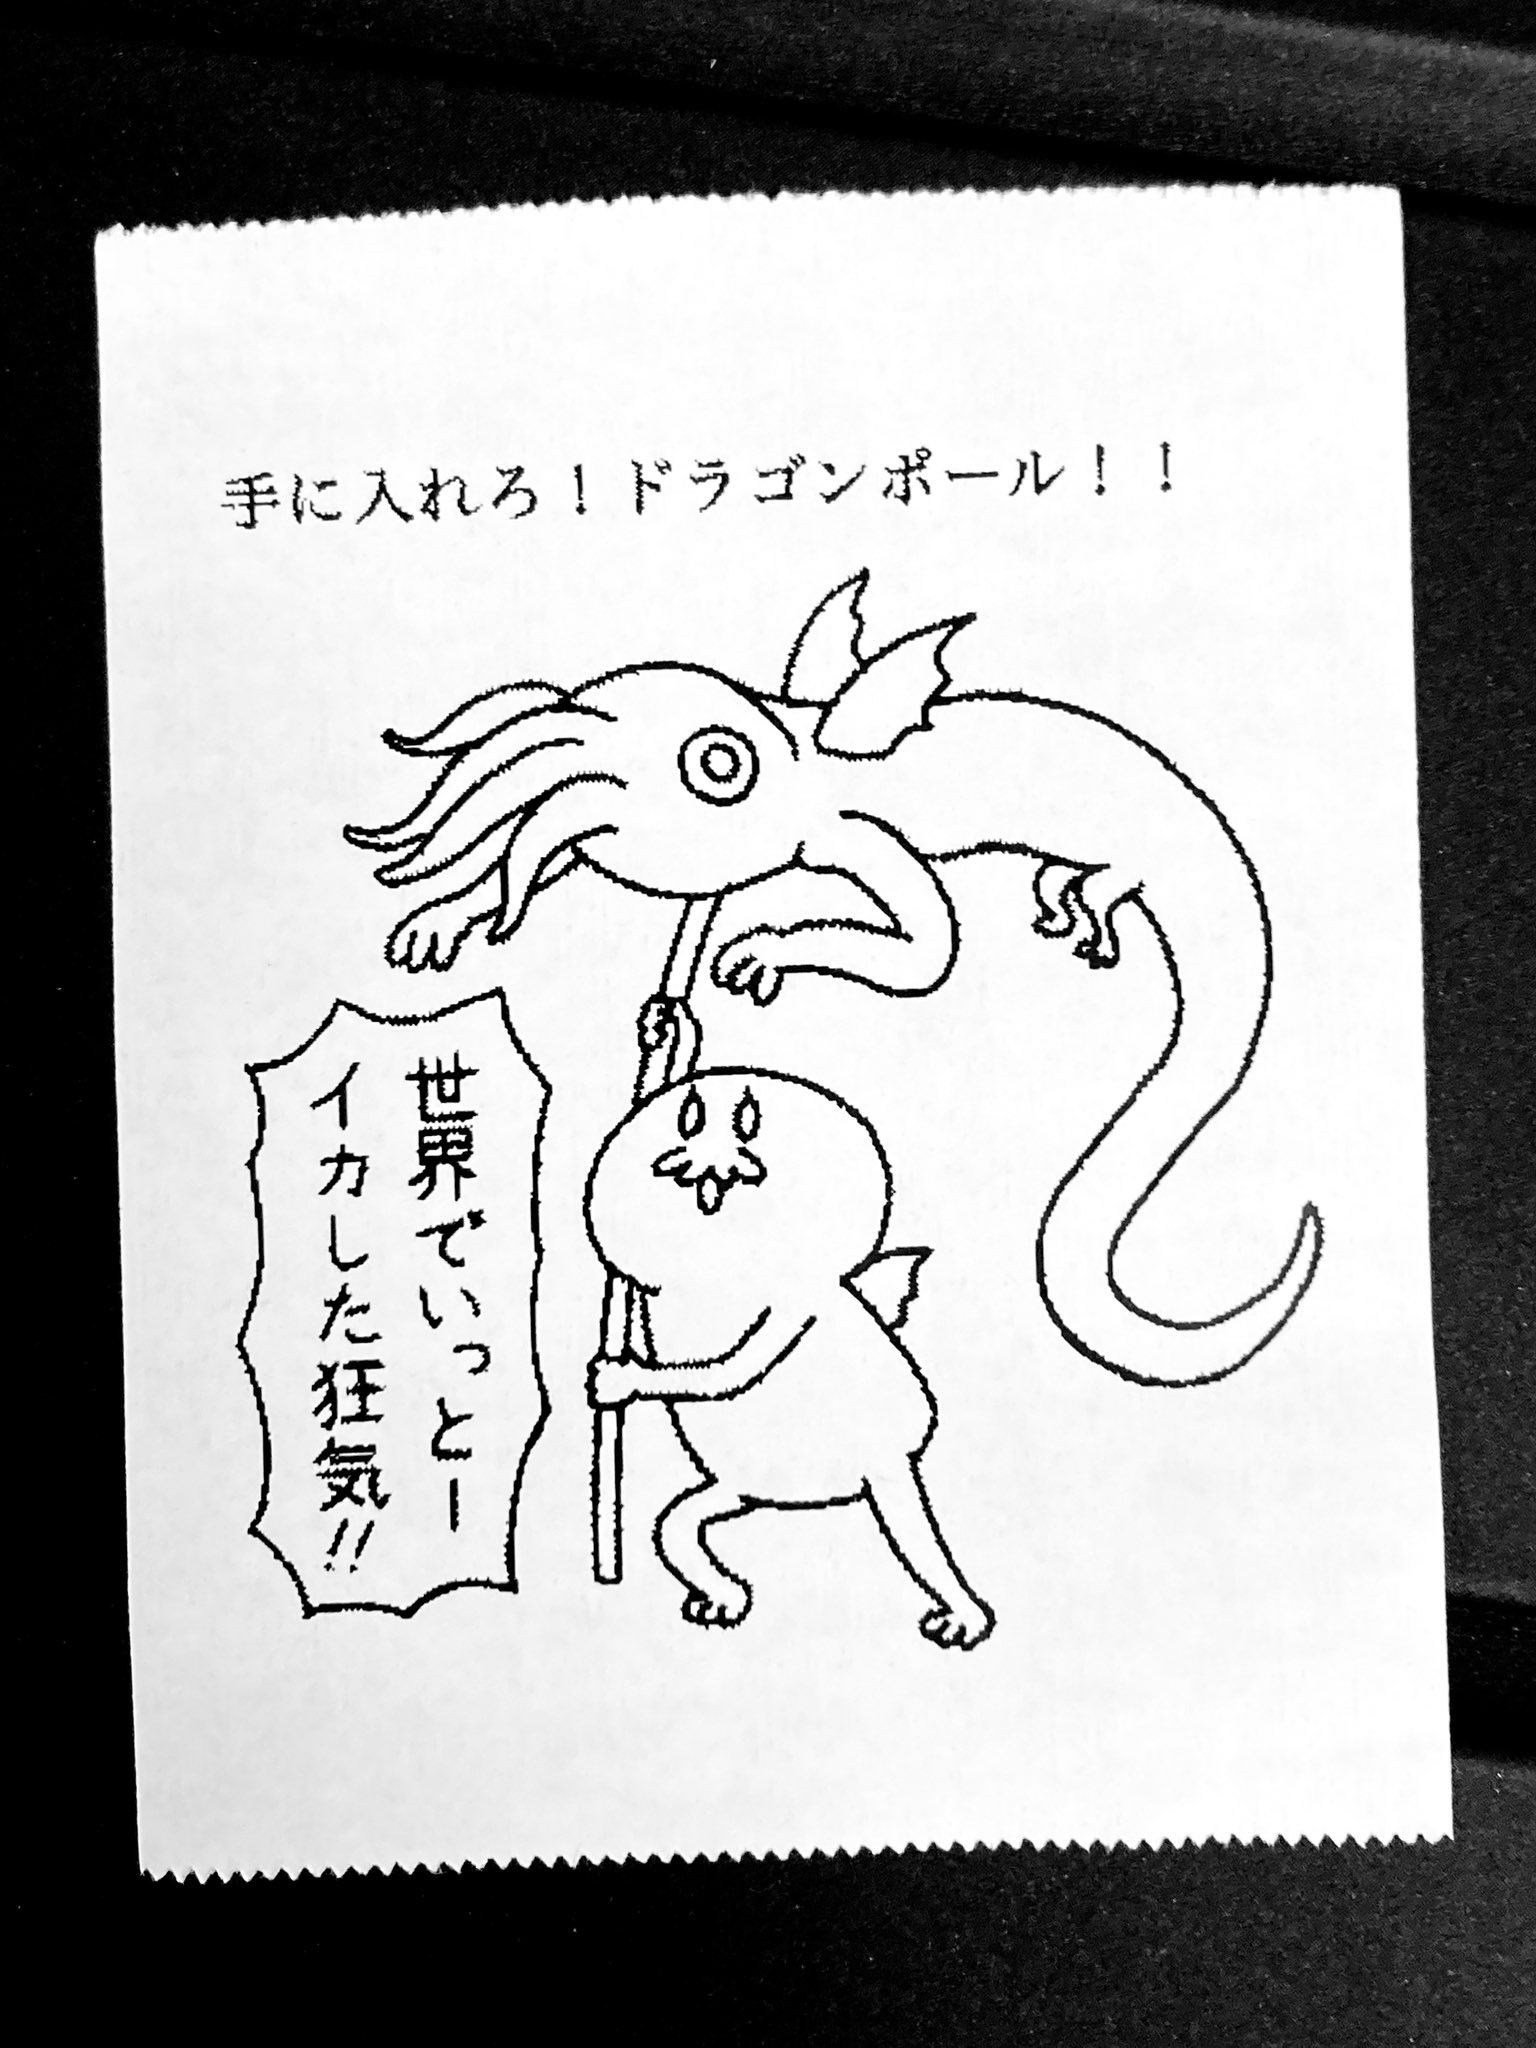 手に入れろ！ドラゴンポール！！
世界でいっとー
イカした狂気!!